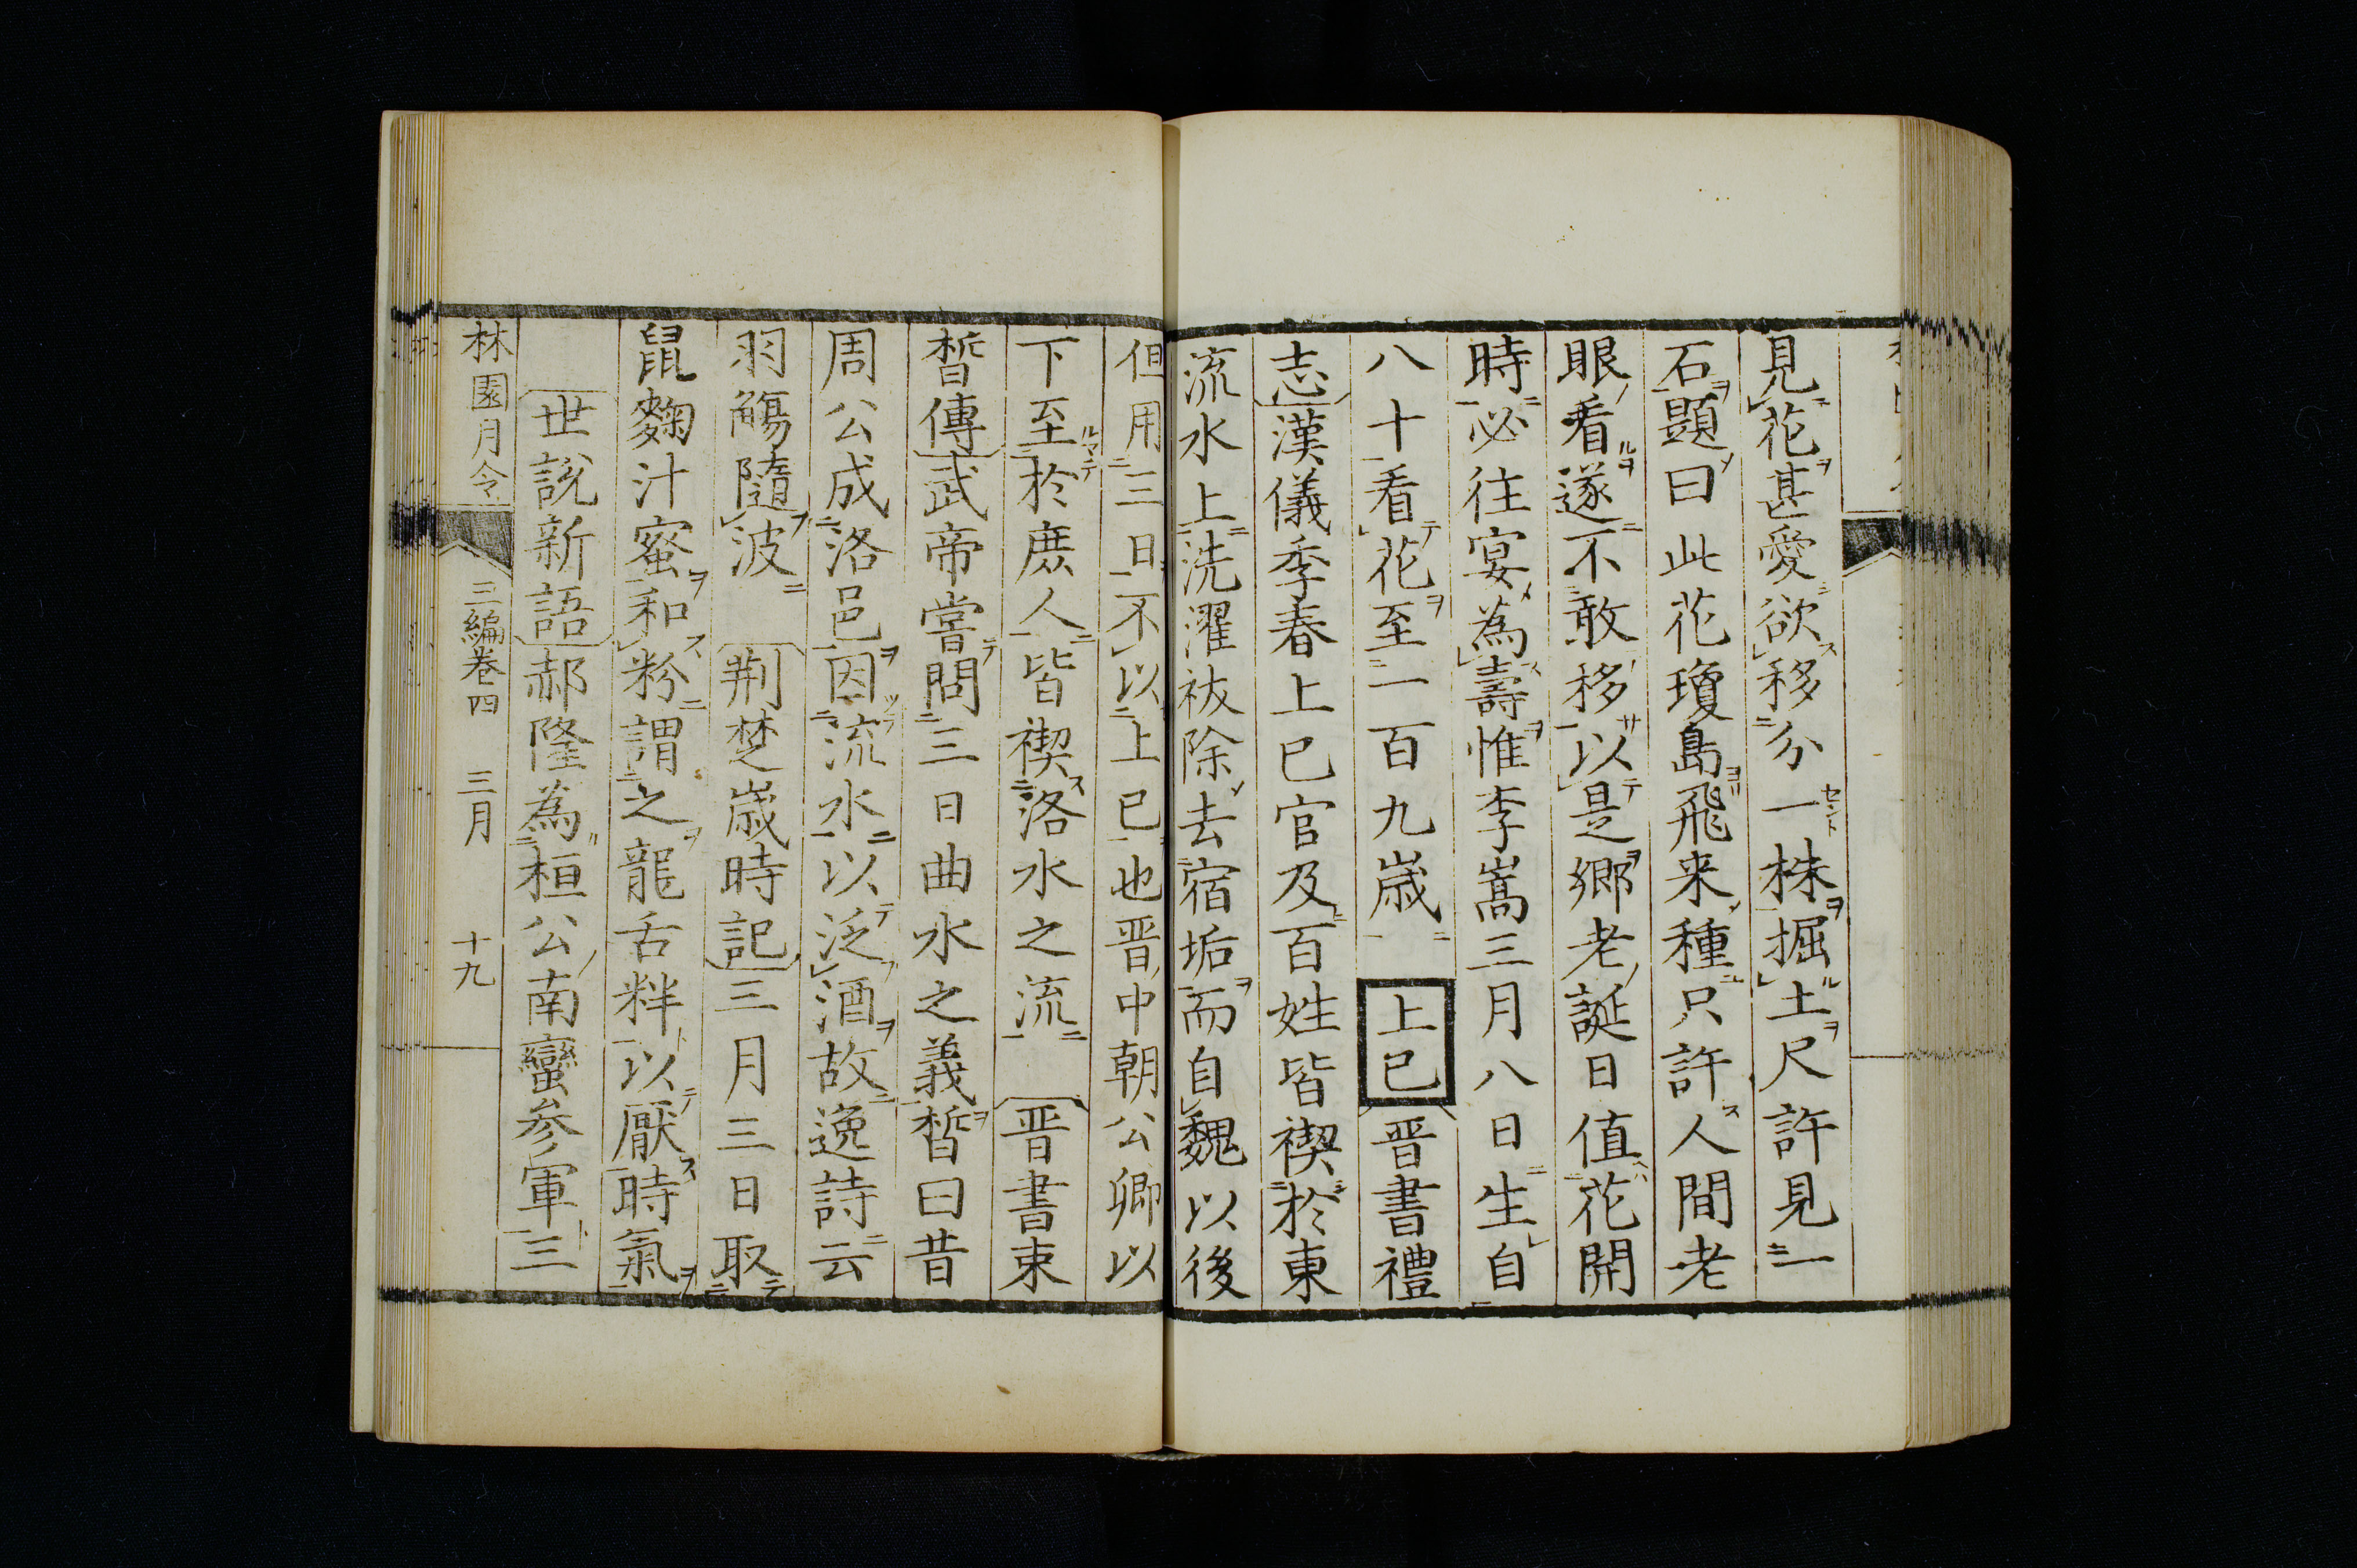 見花甚愛欲移分一株掘土尺許見一
石題曰此花瓊島飛来種只許人間老
眼看遂不敢移以是郷老誕日値花開
時必往宴為壽惟李嵩三月八日生自
八十看花至一百九歳 上巳 晋書禮
志漢儀季春上巳官及百姓皆禊於東
流水上洗濯祓除去宿垢而自魏以後
但用三日不以上巳也晋中朝公卿以
下至於庶人皆禊洛水之流 晋書束
皙傳武帝嘗問三日曲水之義皙曰昔
周公成洛邑因流水以泛酒故逸詩云
羽觴隨波 荆楚歳時記三月三日取
鼠麴汁蜜和粉謂之龍舌䉽以厭時氣
世説新語郝隆為桓公南蠻参軍三
林園月令 三編巻四 三月 十九